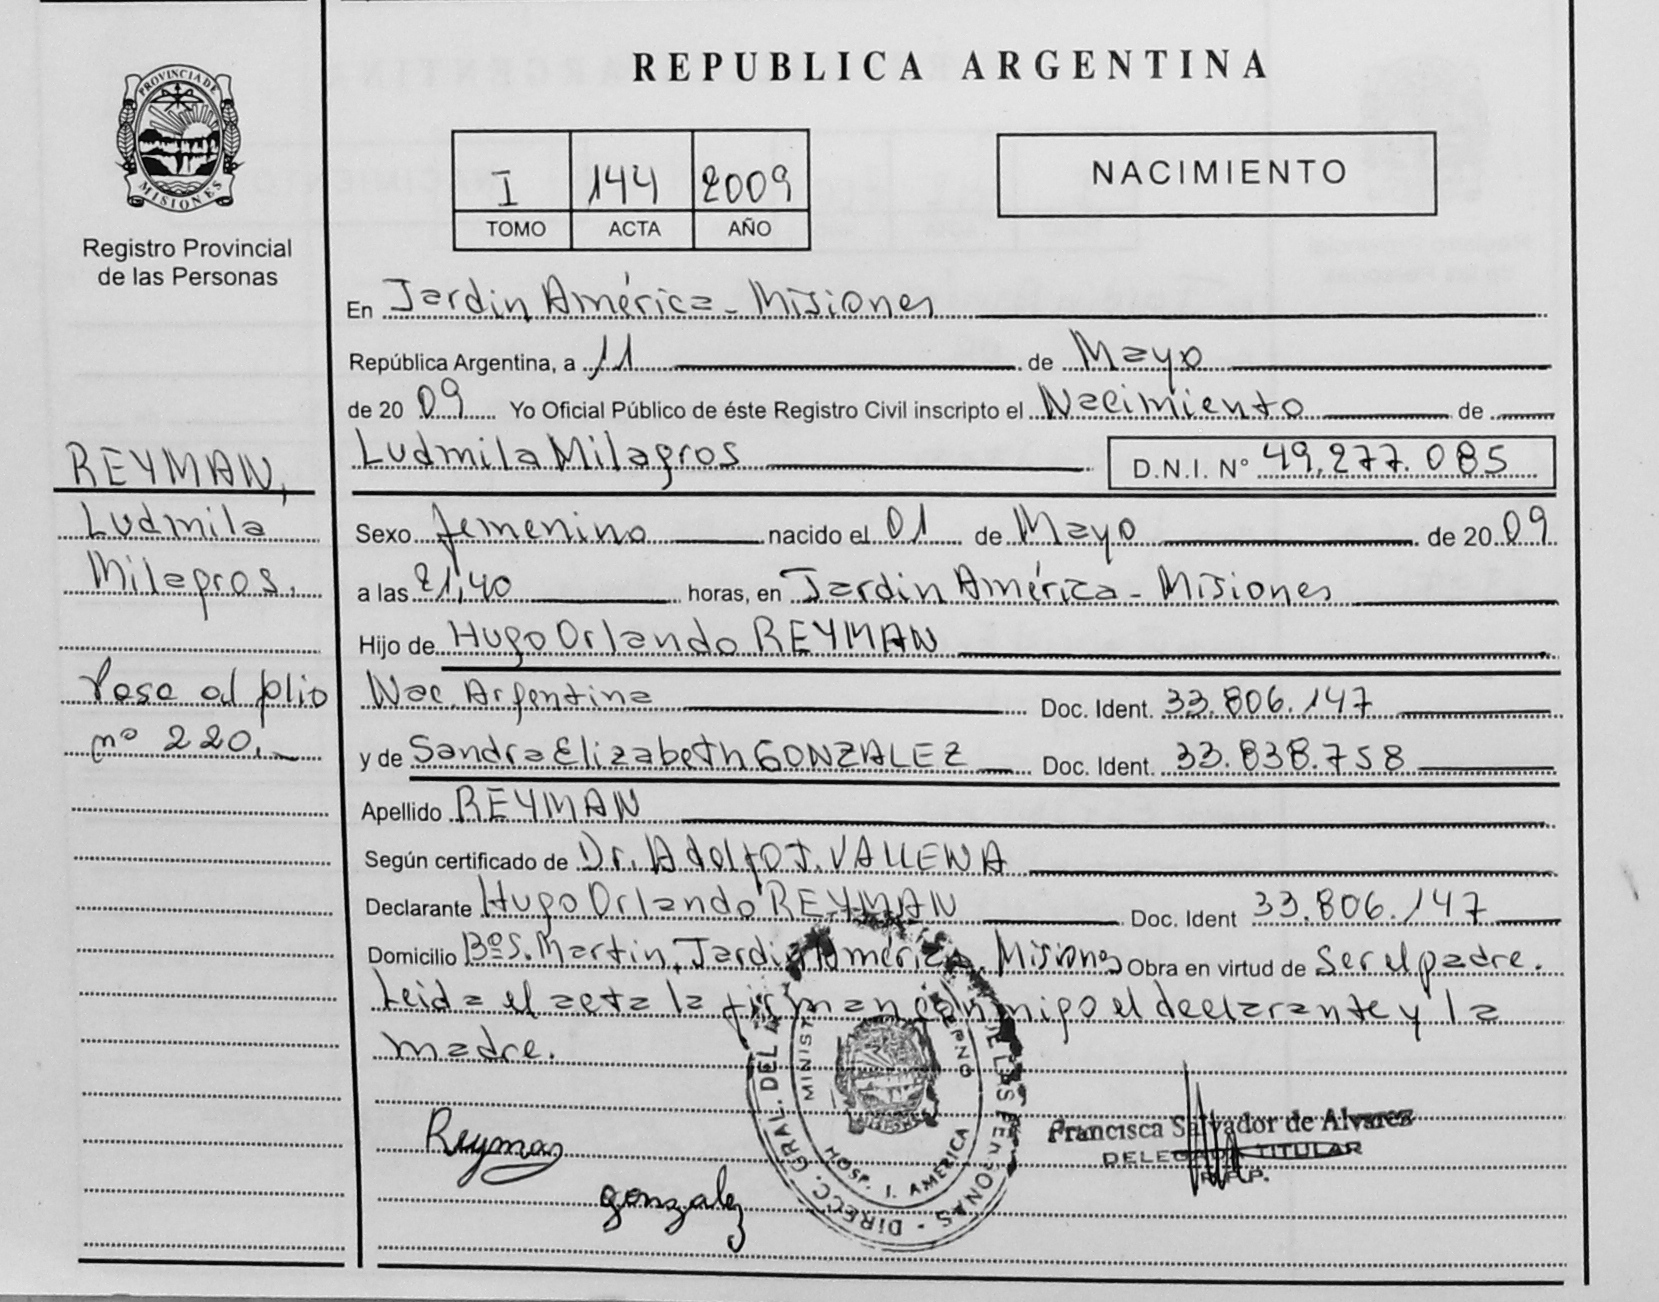 REPUBLICA ARGENTINA
PROVINCIA DE
MISIONES
Registro Provincial
de las Personas
I 144 2009
TOMO ACTA AÑO
NACIMIENTO
En Jardin América - Misiones
República Argentina, a 11 de Mayo
de 20 09 Yo Oficial Público de éste Registro Civil inscripto el Nacimiento de
Ludmila Milagros D.N.I. Nº 49.277.085
REYMAN,
Ludmila
Milagros.
Pase al folio
nº 220.
Sexo femenino nacido el 01 de Mayo de 20 09
a las 21,40 horas, en Jardin América - Misiones
Hijo de Hugo Orlando REYMAN
Nac. Argentina Doc. Ident. 33.806.147
y de Sandra Elizabeth GONZALEZ Doc. Ident. 33.838.758
Apellido REYMAN
Según certificado de Dr. Adolfo J. VALLENA
Declarante Hugo Orlando REYMAN Doc. Ident 33.806.147
Domicilio Bº S. Martin, Jardin América, Misiones Obra en virtud de Ser el padre.
Leida el acta la firman conmigo el declarante y la
madre.
Reyman
gonzalez
DIRECC. GRAL. DEL DE LAS PERSONAS
HOSP. J. AMERICA
MISIONES
Francisca Salvador de Alvarez
DELEGADA TITULAR
R.P.P.